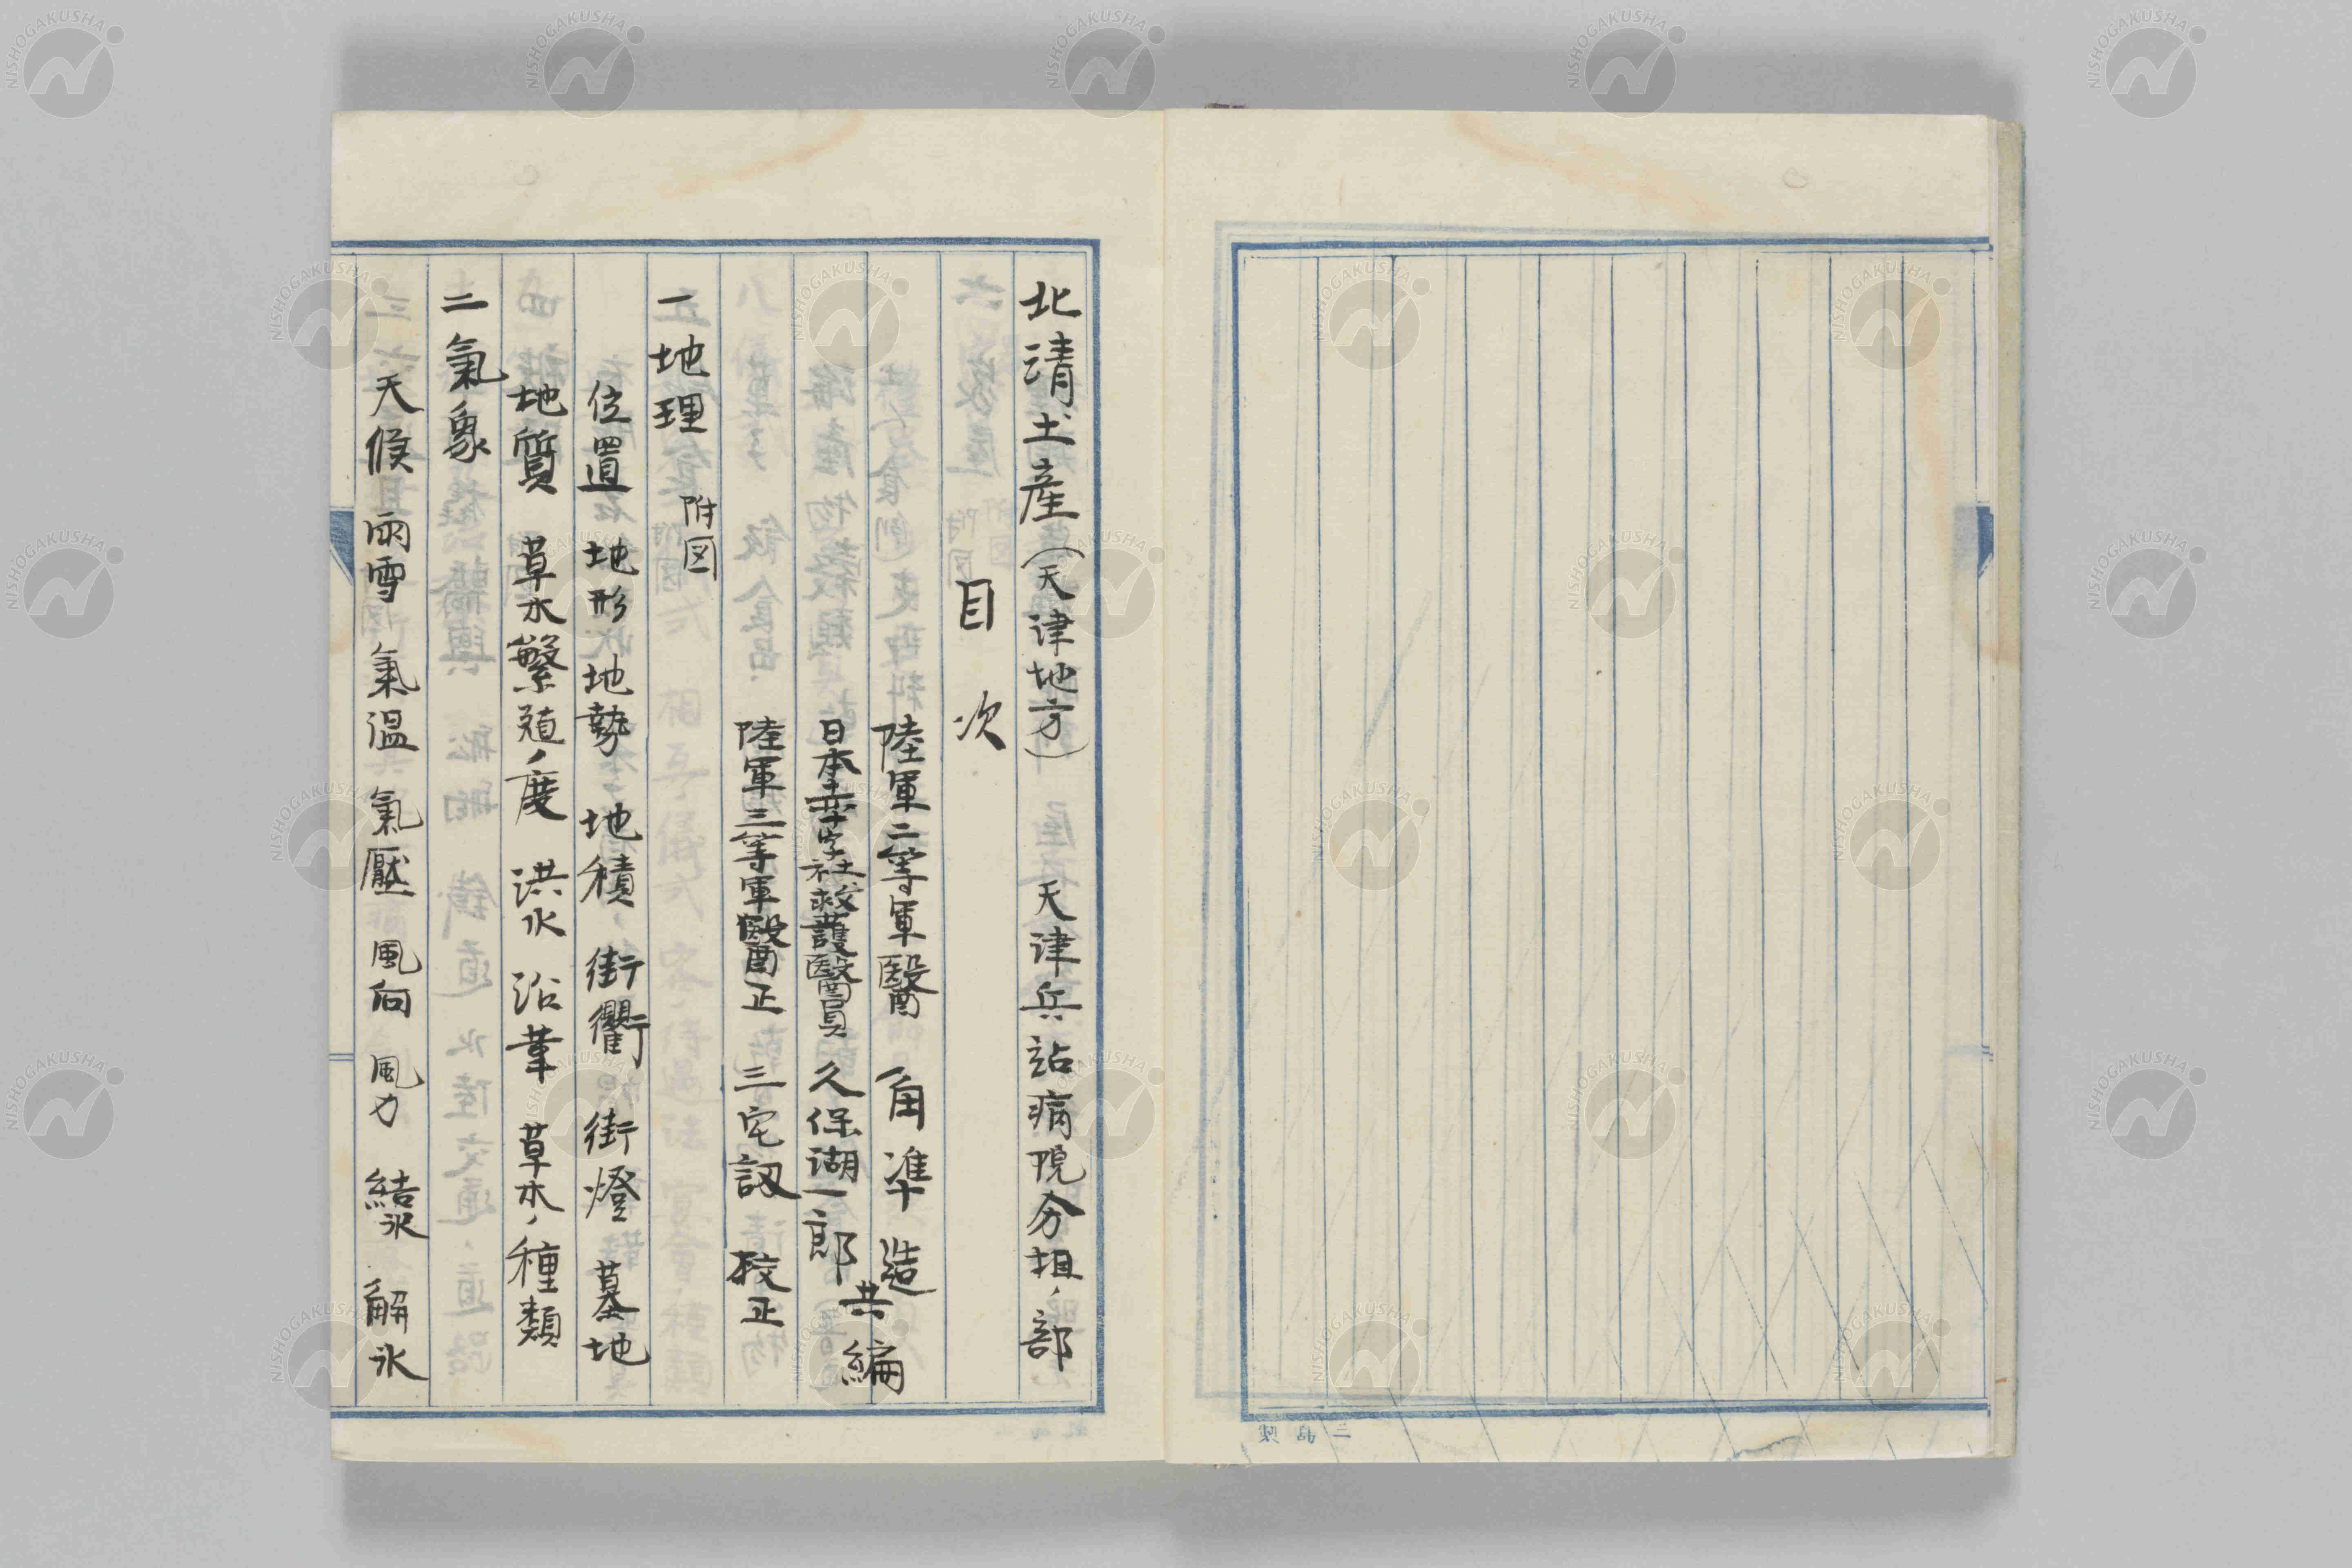 北清土産(天津地方) 天津兵站病院分担ノ部
目次
陸軍二等軍醫 角準造
日本赤十字社救護醫員 久保湖一郎
共編
陸軍三等軍醫正 三宅 校正
一地理 附図
位置 地形 地勢 地積 街衢 街燈 墓地
地質 草木繁殖ノ度 洪水 沿革 草木ノ種類
二氣象
天候 雨雪 氣温 氣壓 風向 風力 結氷 解氷
製島三
NISHOGAKUSHA